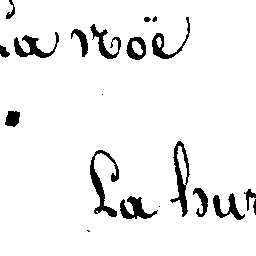 La Noë
La hur